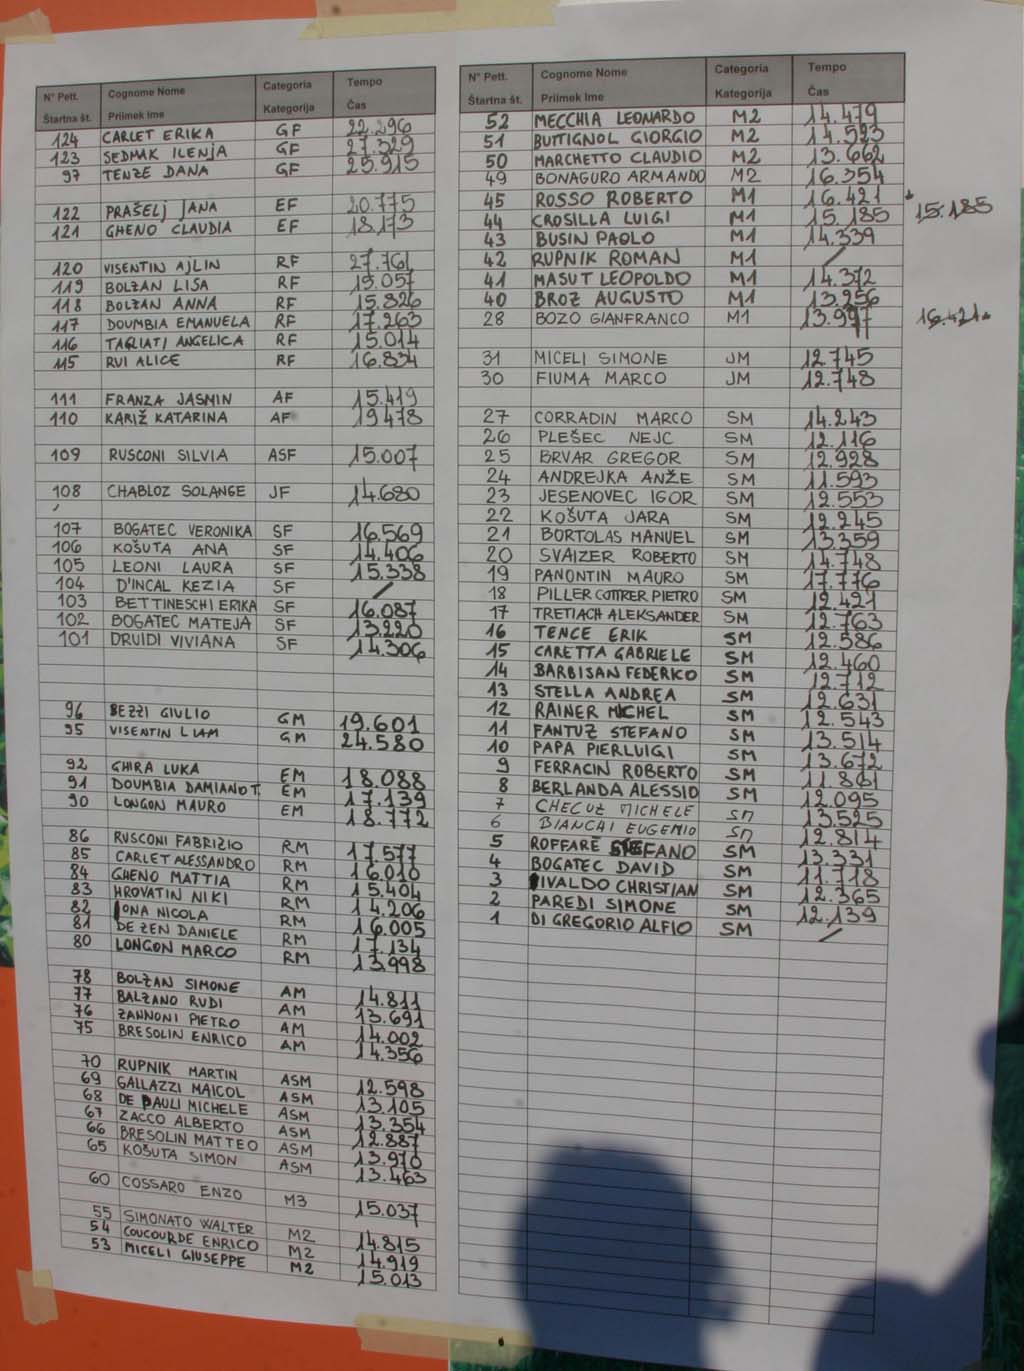 N° Pett. Cognome Nome Categoria Tempo
Štartna št. Priimek Ime Kategorija Čas
124 CARLET ERIKA GF 22.296
123 SEDMAK ILENJA GF 27.329
97 TENZE DANA GF 25.915
122 PRAŠELJ JANA EF 20.775
121 GHENO CLAUDIA EF 18.173
120 VISENTIN AJLIN RF 27.761
119 BOLZAN LISA RF 15.057
118 BOLZAN ANNA RF 15.826
117 DOUMBIA EMANUELA RF 17.263
116 TAGLIATI ANGELICA RF 15.014
115 RUI ALICE RF 16.834
111 FRANZA JASMIN AF 15.419
110 KARIŽ KATARINA AF 19478
109 RUSCONI SILVIA ASF 15.007
108 CHABLOZ SOLANGE JF 14.680
107 BOGATEC VERONIKA SF 16.569
106 KOŠUTA ANA SF 14.406
105 LEONI LAURA SF 15.338
104 D'INCAL KEZIA SF /
103 BETTINESCHI ERIKA SF 16.087
102 BOGATEC MATEJA SF 13.220
101 DRUIDI VIVIANA SF 14.306
96 BEZZI GIULIO GM 19.601
95 VISENTIN LIAM GM 24.580
92 GHIRA LUKA EM 18.088
91 DOUMBIA DAMIANO T. EM 17.139
90 LONGON MAURO EM 18.772
86 RUSCONI FABRIZIO RM 17.577
85 CARLET ALESSANDRO RM 16.010
84 GHENO MATTIA RM 15.404
83 HROVATIN NIKI RM 14.206
82 NICOLA RM 16.005
81 DE ZEN DANIELE RM 17.134
80 LONGON MARCO RM 13.998
78 BOLZAN SIMONE AM 14.811
77 BALZANO RUDI AM 13.691
76 ZANNONI PIETRO AM 14.002
75 BRESOLIN ENRICO AM 14.356
70 RUPNIK MARTIN ASM 12.598
69 GALLAZZI MAICOL ASM 13.105
68 DE PAULI MICHELE ASM 13.354
67 ZACCO ALBERTO ASM 12.887
66 BRESOLIN MATTEO ASM 13.970
65 KOŠUTA SIMON ASM 13.463
60 COSSARO ENZO M3 15.037
55 SIMONATO WALTER M2 14.815
54 COUCOURDE ENRICO M2 14.919
53 MICELI GIUSEPPE M2 15.013
N° Pett. Cognome Nome Categoria Tempo
Štartna št. Priimek Ime Kategorija Čas
52 MECCHIA LEONARDO M2 14.479
51 BUTTIGNOL GIORGIO M2 14.523
50 MARCHETTO CLAUDIO M2 13.662
49 BONAGURO ARMANDO M2 16.354
45 ROSSO ROBERTO M1 16.421 * 15.185
44 CROSILLA LUIGI M1 15.185
43 BUSIN PAOLO M1 14.339
42 RUPNIK ROMAN M1 /
41 MASUT LEOPOLDO M1 14.372
40 BROZ AUGUSTO M1 13.256
28 BOZO GIANFRANCO M1 13.997 16.421*
31 MICELI SIMONE JM 12.745
30 FIUMA MARCO JM 12.748
27 CORRADIN MARCO SM 14.243
26 PLEŠEC NEJC SM 12.116
25 BRVAR GREGOR SM 12.928
24 ANDREJKA ANŽE SM 11.593
23 JESENOVEC IGOR SM 12.553
22 KOŠUTA JARA SM 12.245
21 BORTOLAS MANUEL SM 13.359
20 SVAIZER ROBERTO SM 14.748
19 PANONTIN MAURO SM 17.776
18 PILLER COTTRER PIETRO SM 12.421
17 TRETIACH ALEKSANDER SM 12.763
16 TENCE ERIK SM 12.586
15 CARETTA GABRIELE SM 12.460
14 BARBISAN FEDERICO SM 12.712
13 STELLA ANDREA SM 12.631
12 RAINER MICHEL SM 12.543
11 FANTUZ STEFANO SM 13.514
10 PAPA PIERLUIGI SM 13.672
9 FERRACIN ROBERTO SM 11.861
8 BERLANDA ALESSIO SM 12.095
7 CHECUZ MICHELE SM 13.525
6 BIANCAI EUGENIO SM 12.814
5 ROFFARÈ STEFANO SM 13.331
4 BOGATEC DAVID SM 11.718
3 CHRISTIAN SM 12.365
2 PAREDI SIMONE SM 12.139
1 DI GREGORIO ALFIO SM /